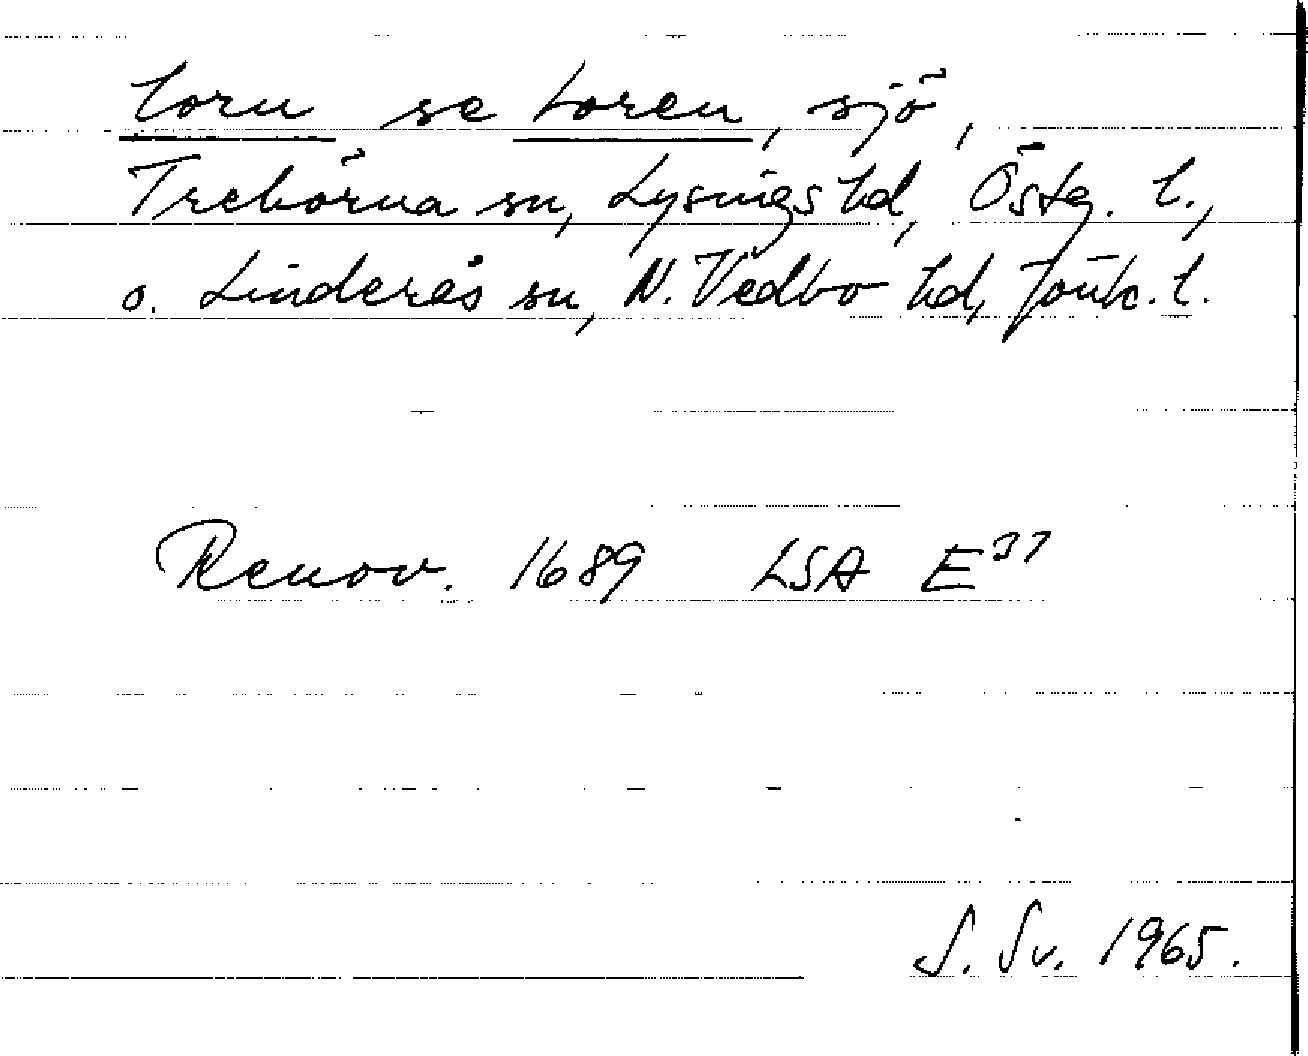 Lorn se Loren, sjö,
Trehörna sn, Lysings hd, Östg. l.,
o. Linderås sn, N. Vedbo hd, Jönk. l.
Renov. 1689 LSA E37
S. Sv. 1965.